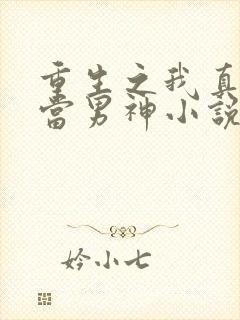 重生之我真
当男神小说
妗小七